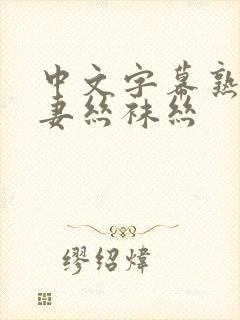 中文字幕熟
妻丝袜丝
缪绍炜